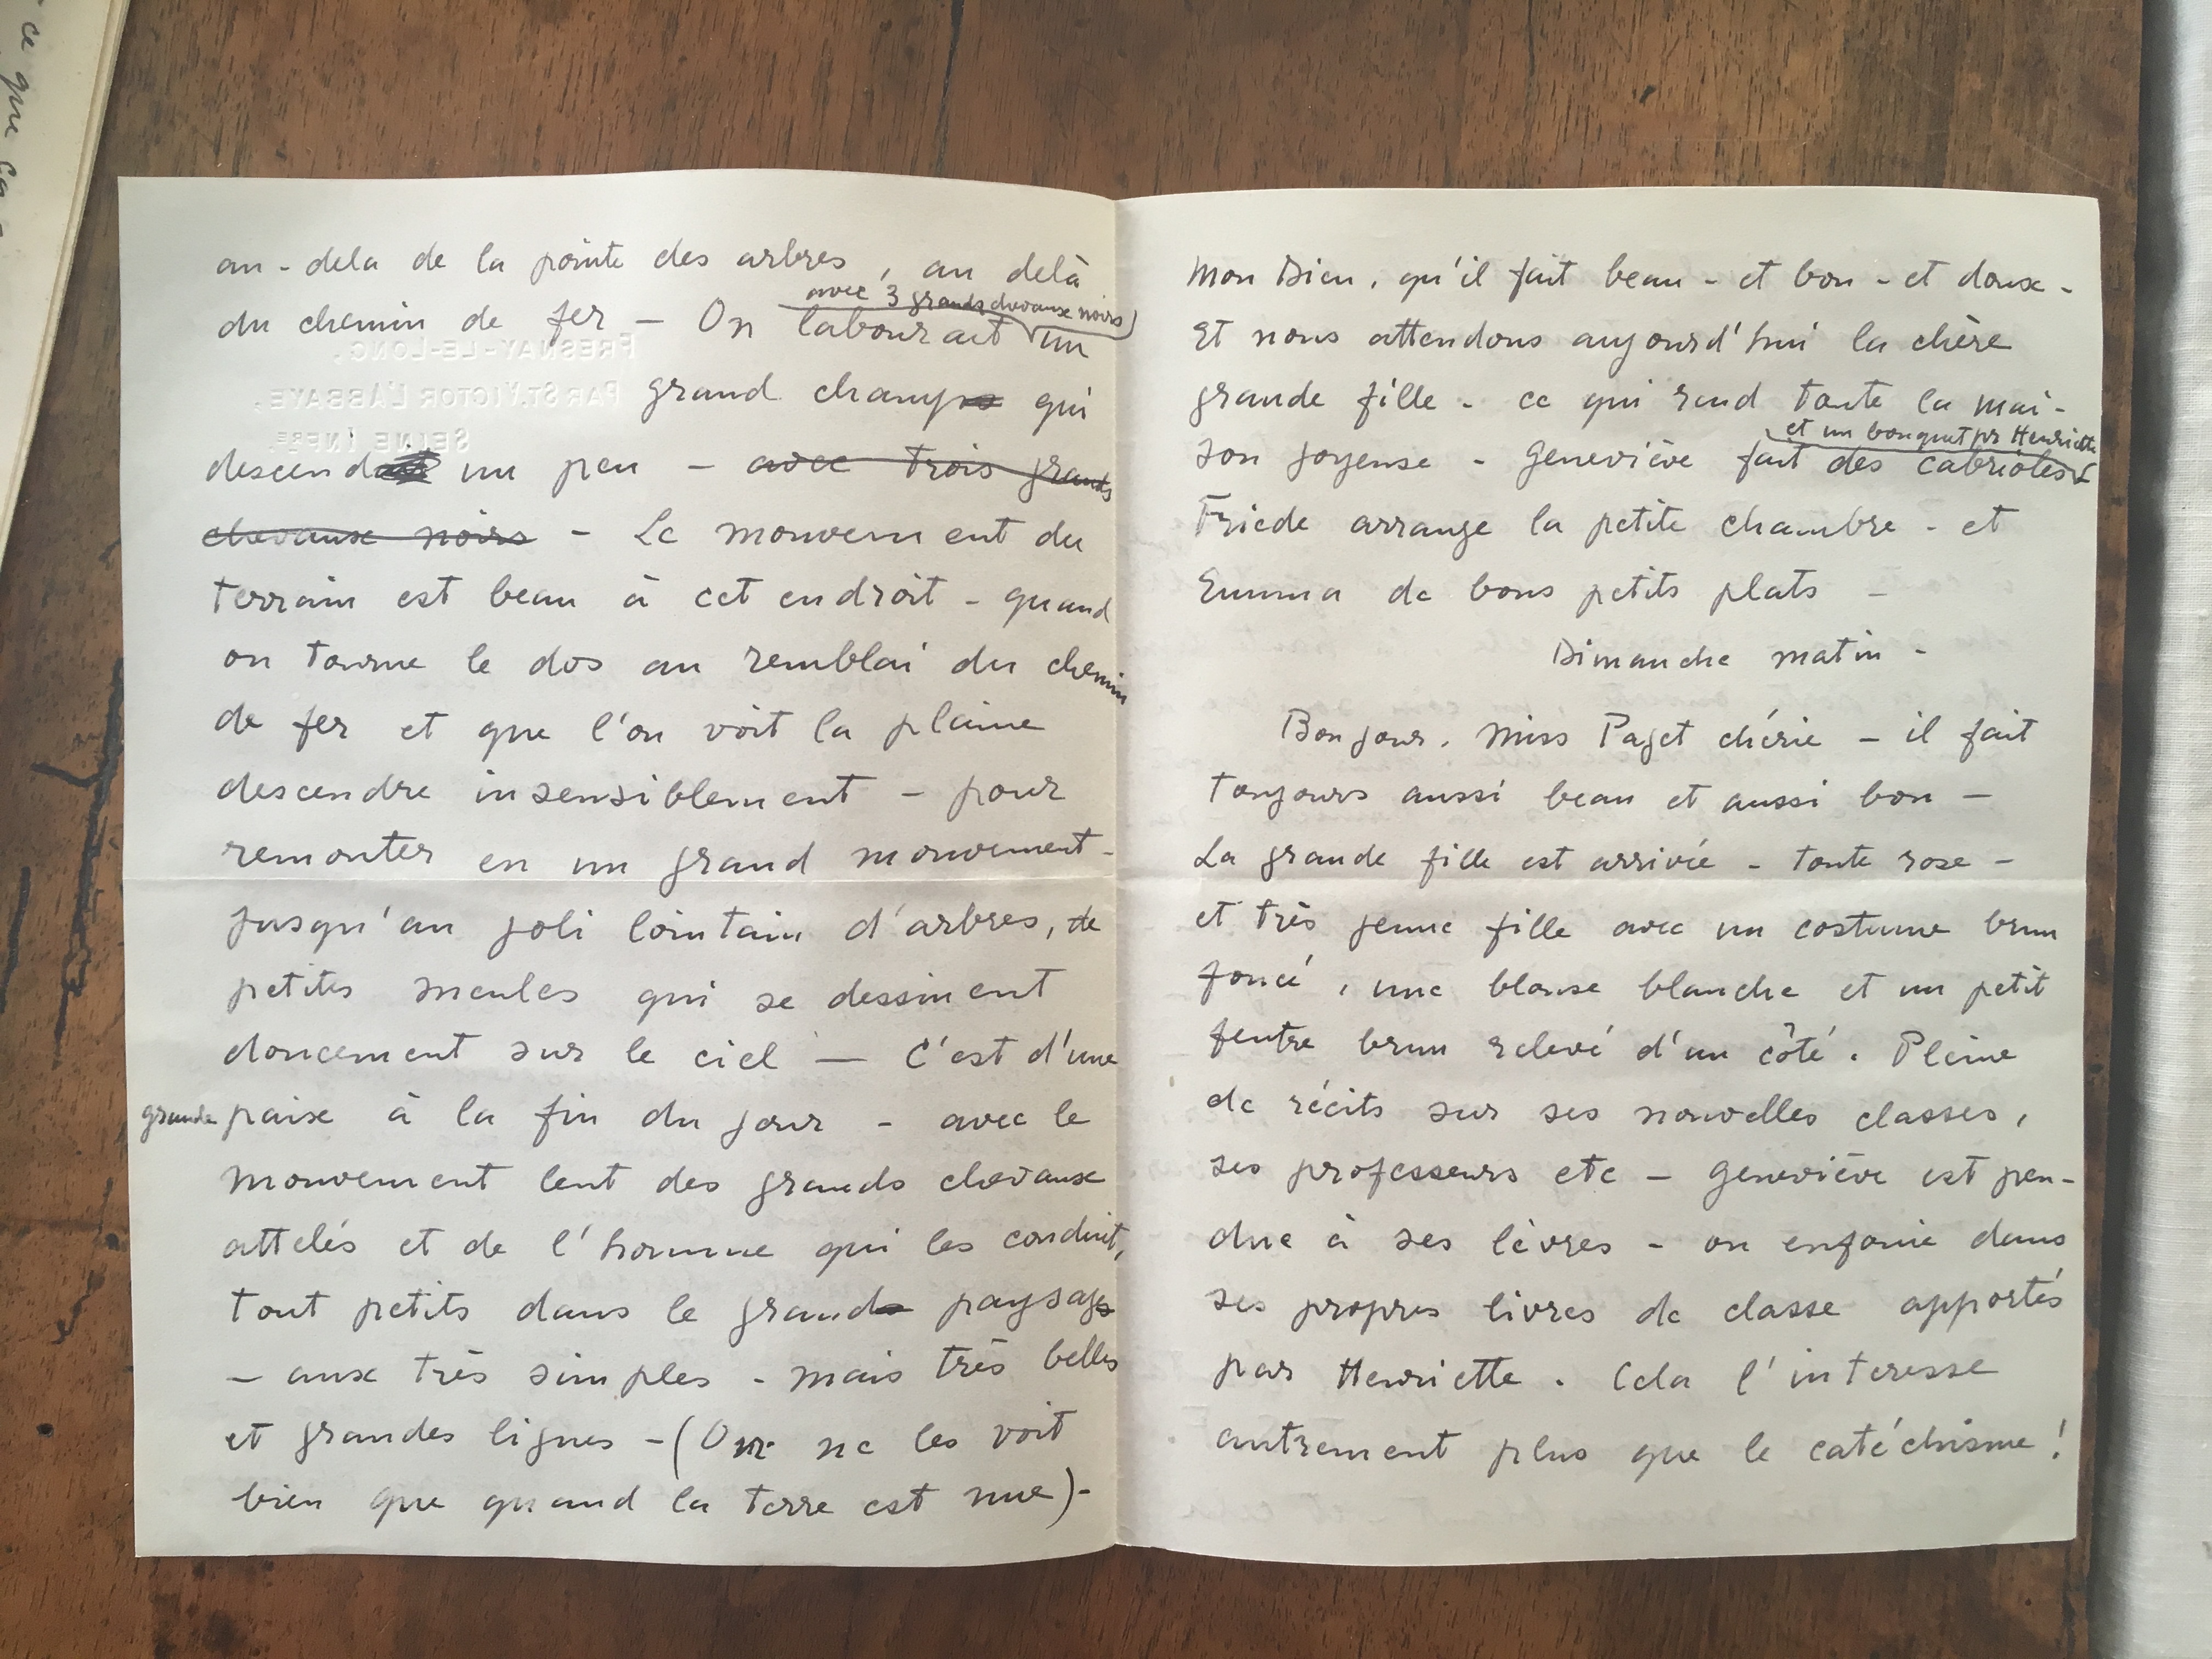 ce que ça
au-dela de la pointe des arbres, au delà
avec 3 grands chevaux noirs
du chemin de fer – On labourait un
FRESNAY-LE-LONG,
PAR ST. VICTOR L'ABBAYE,
SEINE INFRE.
grand champs qui
descend un peu – avec trois grands
chevaux noirs – Le mouvement du
terrain est beau à cet endroit – quand
on tourne le dos au remblai du chemin
de fer et que l'on voit la plaine
descendre insensiblement – pour
remonter en un grand mouvement –
jusqu'au joli lointain d'arbres, de
petites meules qui se dessinent
doucement sur le ciel — C'est d'une
grande paix à la fin du jour – avec le
mouvement lent des grands chevaux
attelés et de l'homme qui les conduit,
tout petits dans le grands paysage
– aux très simples – mais très belles
et grandes lignes – (On ne les voit
bien que quand la terre est nue) –
Mon Dieu, qu'il fait beau – et bon – et doux –
Et nous attendons aujourd'hui la chère
grande fille – ce qui rend toute la mai-
et un bouquet pr Henriette
son joyeuse – Geneviève fait des cabrioles
Friede arrange la petite chambre – et
Emma de bons petits plats –
Dimanche matin –
Bonjour, Miss Paget chérie – il fait
toujours aussi beau et aussi bon –
La grande fille est arrivée – toute rose –
et très jeune fille avec un costume brun
foncé, une blouse blanche et un petit
feutre brun relevé d'un côté. Pleine
de récits sur ses nouvelles classes,
ses professeurs etc – Geneviève est pen-
due à ses lèvres – ou enfouie dans
ses propres livres de classe apportés
par Henriette. Cela l'interesse
autrement plus que le catéchisme !